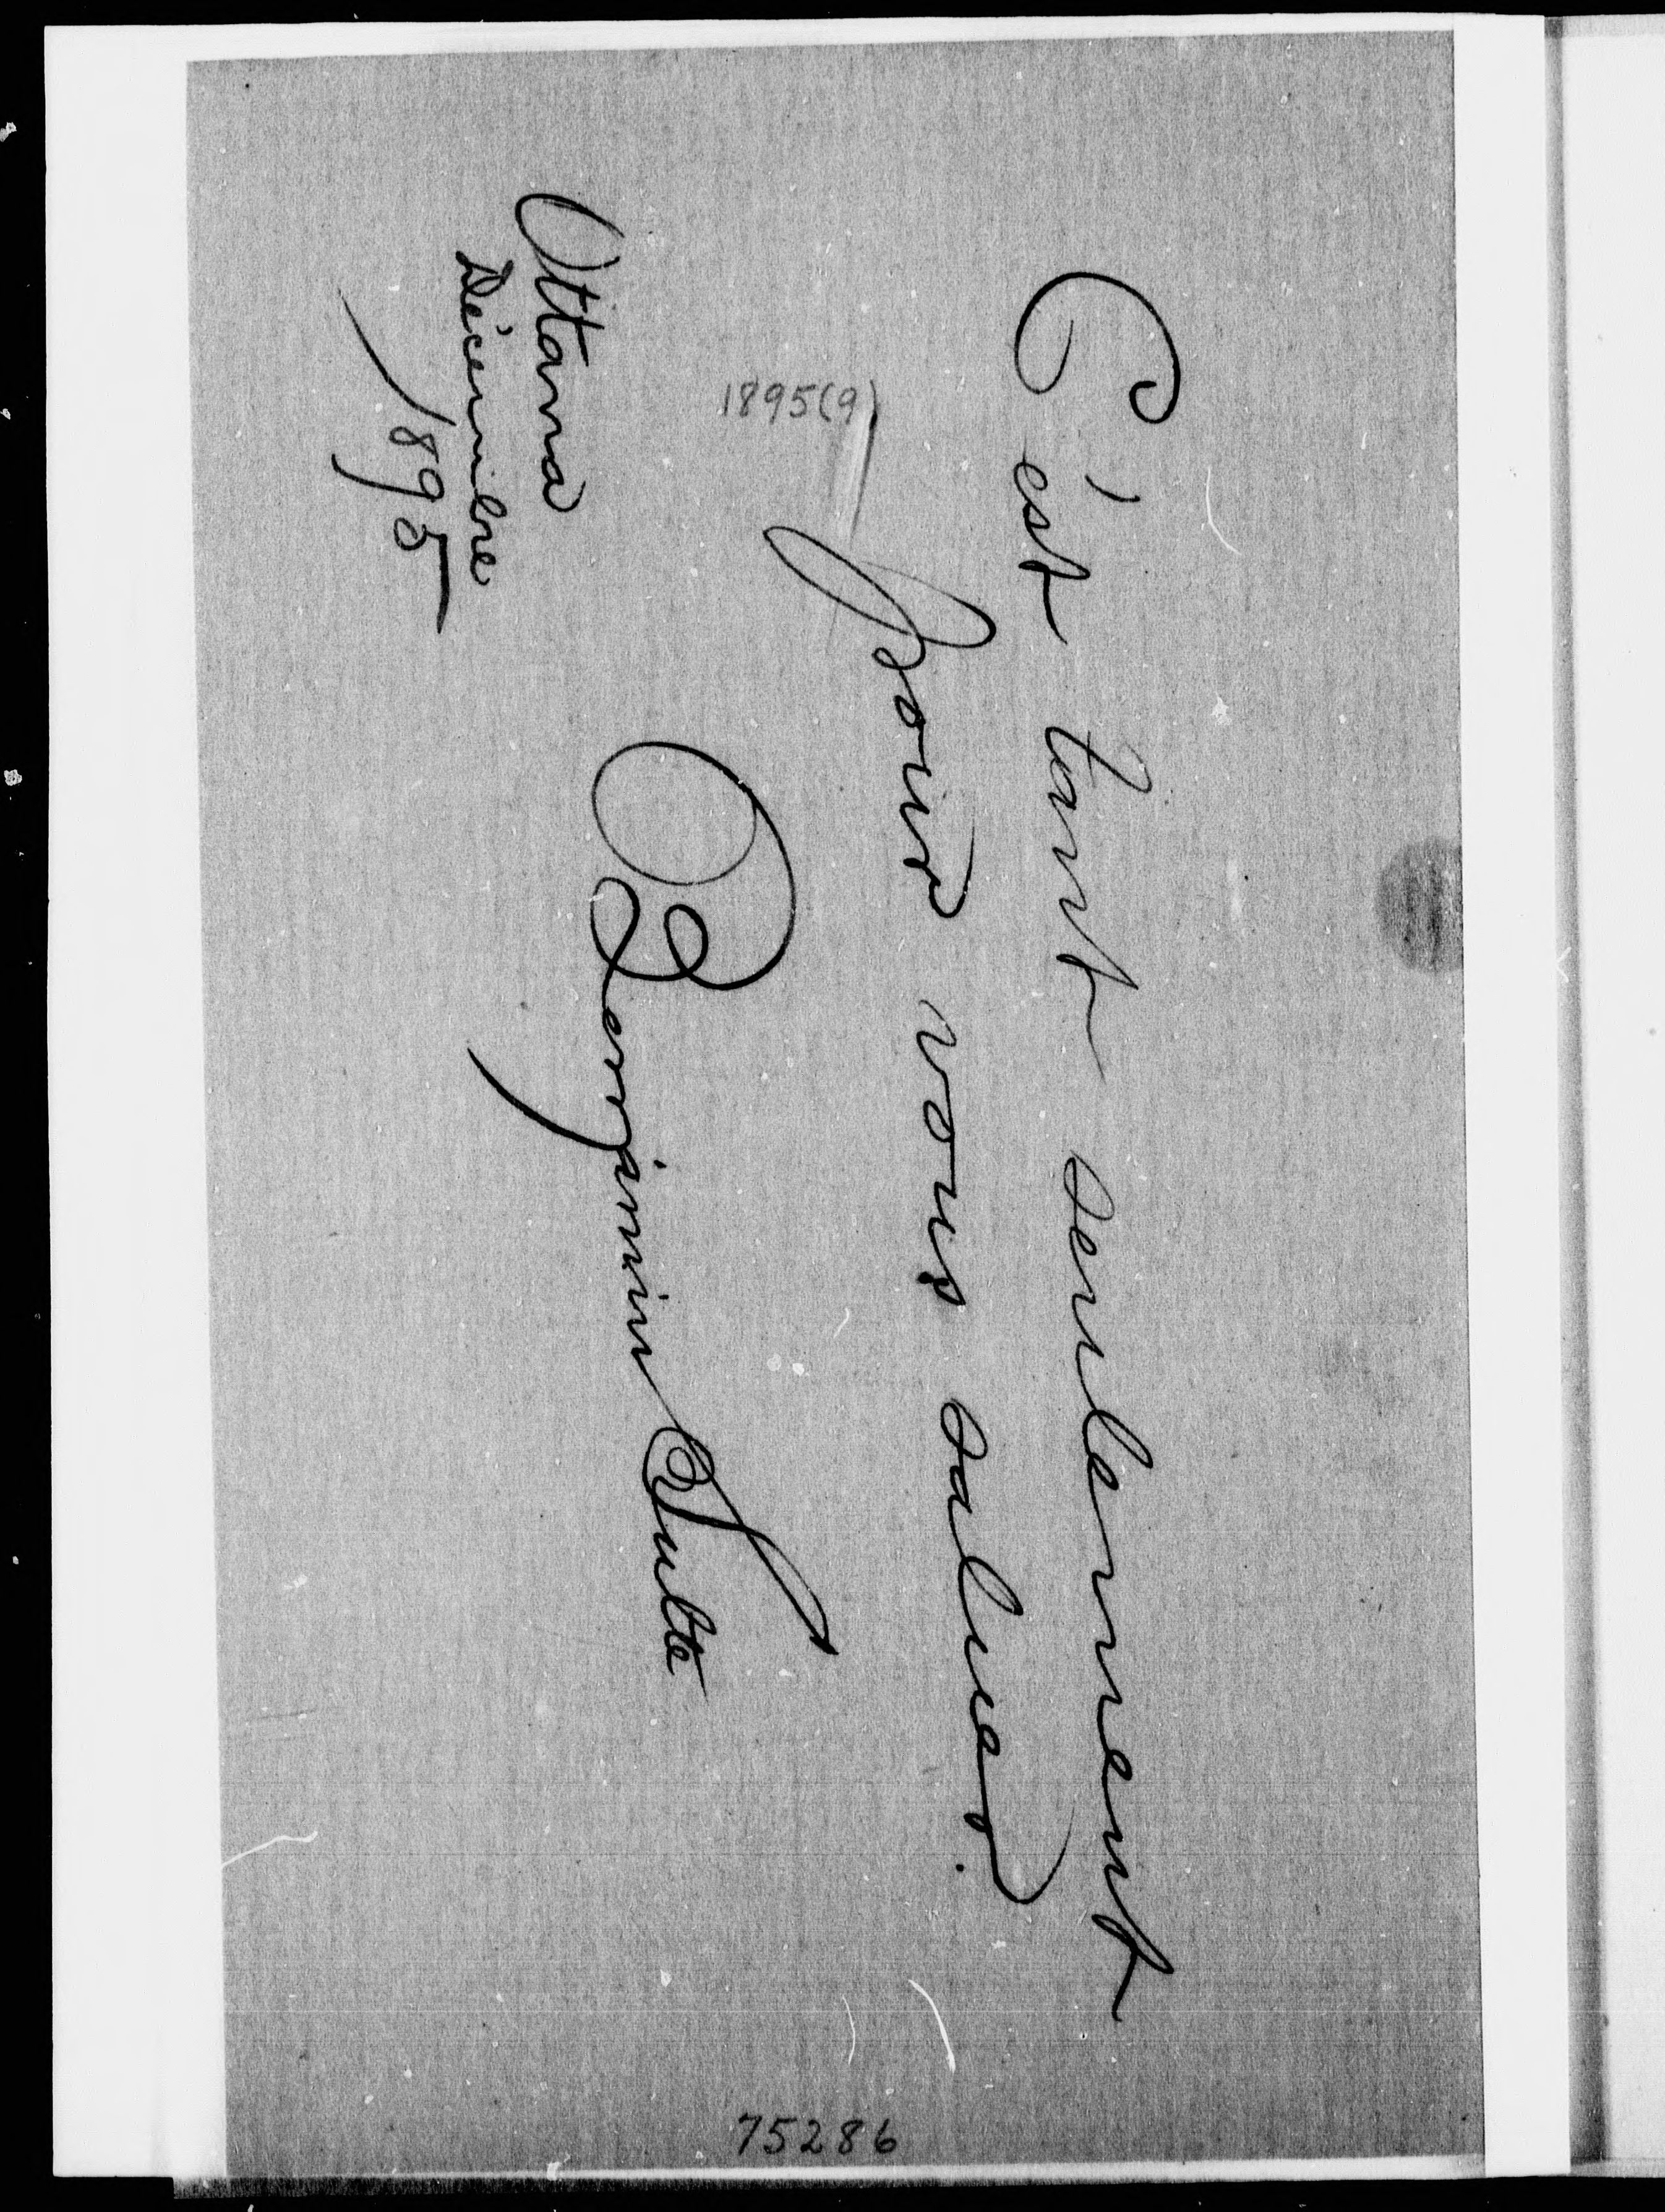 C'est tant seulement
pour vous saluer.
Benjamin Sulte
Ottawa
Décembre
1895
1895(9)
75286